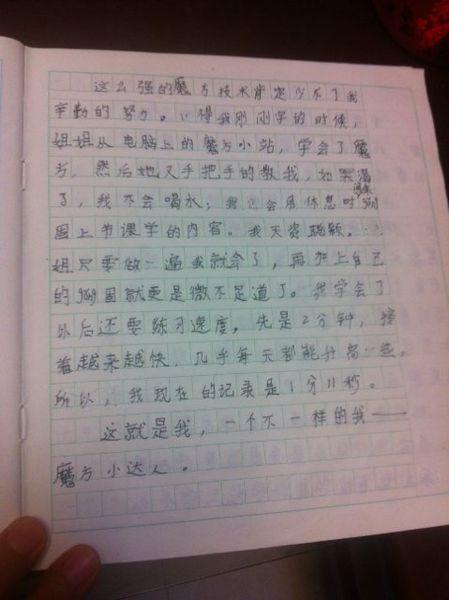 这么强的魔方技术肯定少不了我
辛勤的努力。记得我刚刚学的时候，
姐姐从电脑上的魔方小站，学会了魔
方，然后她又手把手的教我，她累渴
了，我不会喝水；我还会用休息时
固上节课学的内容。我天资聪颖，
姐只要做一遍我就会了，再加上自己
的巩固就更是微不足道了。我学会了
以后还要练习速度，先是2分钟，接
着越来越快，几乎每天都能升高一些。
所以，我现在的记录是1分11秒。
这就是我，一个不一样的我——
魔方小达人。